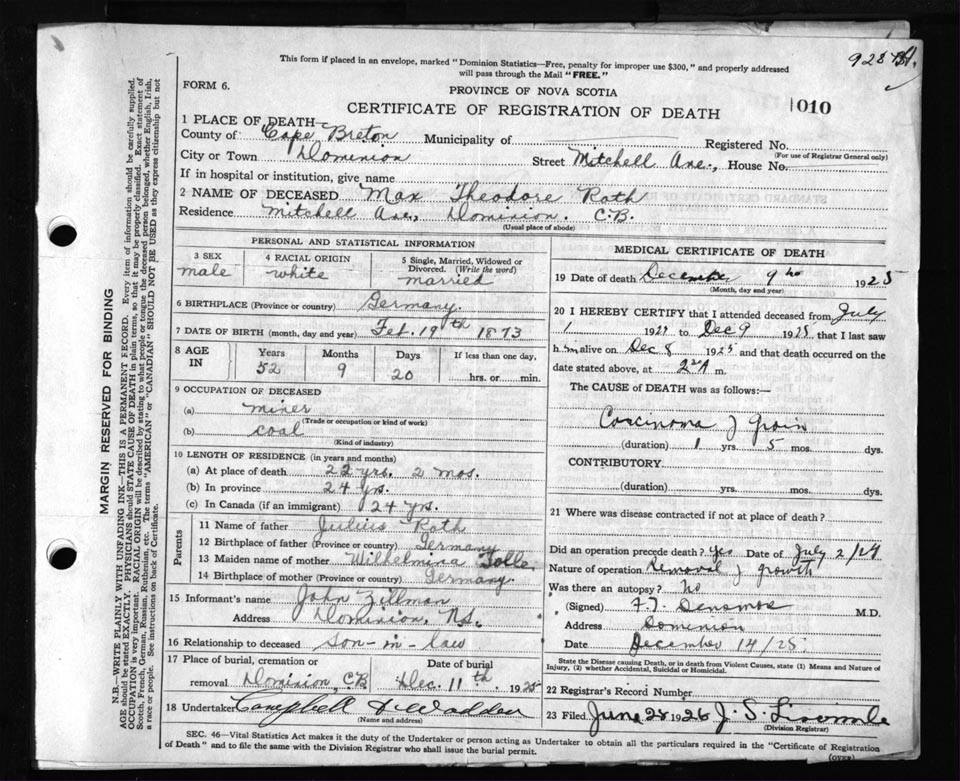 This form if placed in an envelope, marked "Dominion Statistics—Free, penalty for improper use $300," and properly addressed
will pass through the Mail "FREE."
928
FORM 6.
PROVINCE OF NOVA SCOTIA
CERTIFICATE OF REGISTRATION OF DEATH
1010
1 PLACE OF DEATH—
County of Cape Breton Municipality of Registered No.
(For use of Registrar General only)
City or Town Dominion Street Mitchell Ave., House No.
If in hospital or institution, give name
2 NAME OF DECEASED Max Theodore Roth
Residence Mitchell Ave, Dominion. C.B.
(Usual place of abode)
PERSONAL AND STATISTICAL INFORMATION
3 SEX
male
4 RACIAL ORIGIN
white
5 Single, Married, Widowed or Divorced. (Write the word)
married
6 BIRTHPLACE (Province or country) Germany.
7 DATE OF BIRTH (month, day and year) Feb. 19th 1873
8 AGE IN
Years Months Days If less than one day,
52 9 20 hrs. or min.
9 OCCUPATION OF DECEASED
(a) miner
(Trade or occupation or kind of work)
(b) coal
(Kind of industry)
10 LENGTH OF RESIDENCE (in years and months)
(a) At place of death 22 yrs. 2 mos.
(b) In province 24 yrs.
(c) In Canada (if an immigrant) 24 yrs.
Parents
11 Name of father Julius Roth
12 Birthplace of father (Province or country) Germany
13 Maiden name of mother Wilhelmina Tolle
14 Birthplace of mother (Province or country) Germany.
15 Informant's name John Zillman
Address Dominion, N.S.
16 Relationship to deceased son-in-law
17 Place of burial, cremation or removal Dominion C.B.
Date of burial
Dec. 11th. 1925
18 Undertaker Campbell & Wadden
(Name and address)
MEDICAL CERTIFICATE OF DEATH
19 Date of death December 9th 1925
(Month, day and year)
20 I HEREBY CERTIFY that I attended deceased from July
1 192 to Dec 9 1925, that I last saw
him alive on Dec 8 1925 and that death occurred on the
date stated above, at 2 A m.
The CAUSE of DEATH was as follows:—
Carcinoma of Groin
(duration) 1 yrs. 5 mos. dys.
CONTRIBUTORY.
(duration) yrs. mos. dys.
21 Where was disease contracted if not at place of death?
Did an operation precede death? Yes Date of July 2/24
Nature of operation Removal of growth
Was there an autopsy? No
(Signed) M.D.
Address Dominion
Date December 14/25
State the Disease causing Death, or in death from Violent Causes, state (1) Means and Nature of
Injury, (2) whether Accidental, Suicidal or Homicidal.
22 Registrar's Record Number
23 Filed June 28, 1926 J. S.
(Division Registrar)
SEC. 46—Vital Statistics Act makes it the duty of the Undertaker or person acting as Undertaker to obtain all the particulars required in the "Certificate of Registration
of Death" and to file the same with the Division Registrar who shall issue the burial permit.
(OVER)
MARGIN RESERVED FOR BINDING
N.B.—WRITE PLAINLY WITH UNFADING INK—THIS IS A PERMANENT RECORD. Every item of information should be carefully supplied.
AGE should be stated EXACTLY. PHYSICIANS should STATE CAUSE OF DEATH in plain terms, so that it may be properly classified. Exact statement of
OCCUPATION is very important. RACIAL ORIGIN will be described by stating to what people or tongue the deceased person belonged, whether English, Irish,
Scotch, French, German, Russian, Ruthenian, etc. The terms "AMERICAN" or "CANADIAN" SHOULD NOT BE USED as they express citizenship but not
a race or people. See instructions on back of Certificate.